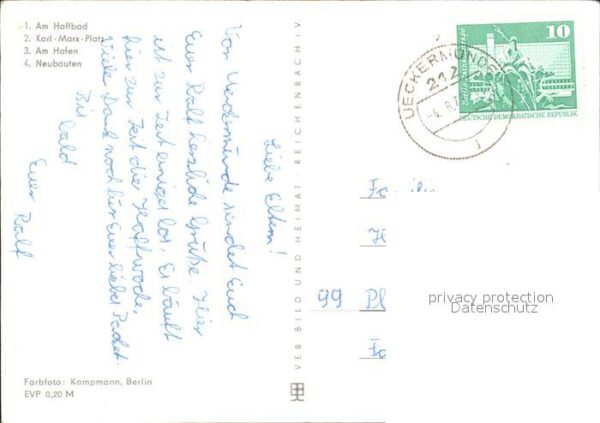 1. Am Haffbad
2. Karl-Marx-Platz
3. Am Hafen
4. Neubauten
Liebe Eltern!
Von Ueckermünde sendet Euch
Euer Ralf herzliche Grüße. Hier
ist zur Zeit einiges los. Es läuft
hier zur Zeit die Haffwoche.
Viele Dank noch für Euer liebes Packet.
Bis bald
Euer Ralf
Farbfoto: Kampmann, Berlin
EVP 0,20 M
VEB BILD UND HEIMAT · REICHENBACH i. V.
UECKERMÜNDE
212
10
DEUTSCHE DEMOKRATISCHE REPUBLIK
99 Pl
privacy protection
Datenschutz